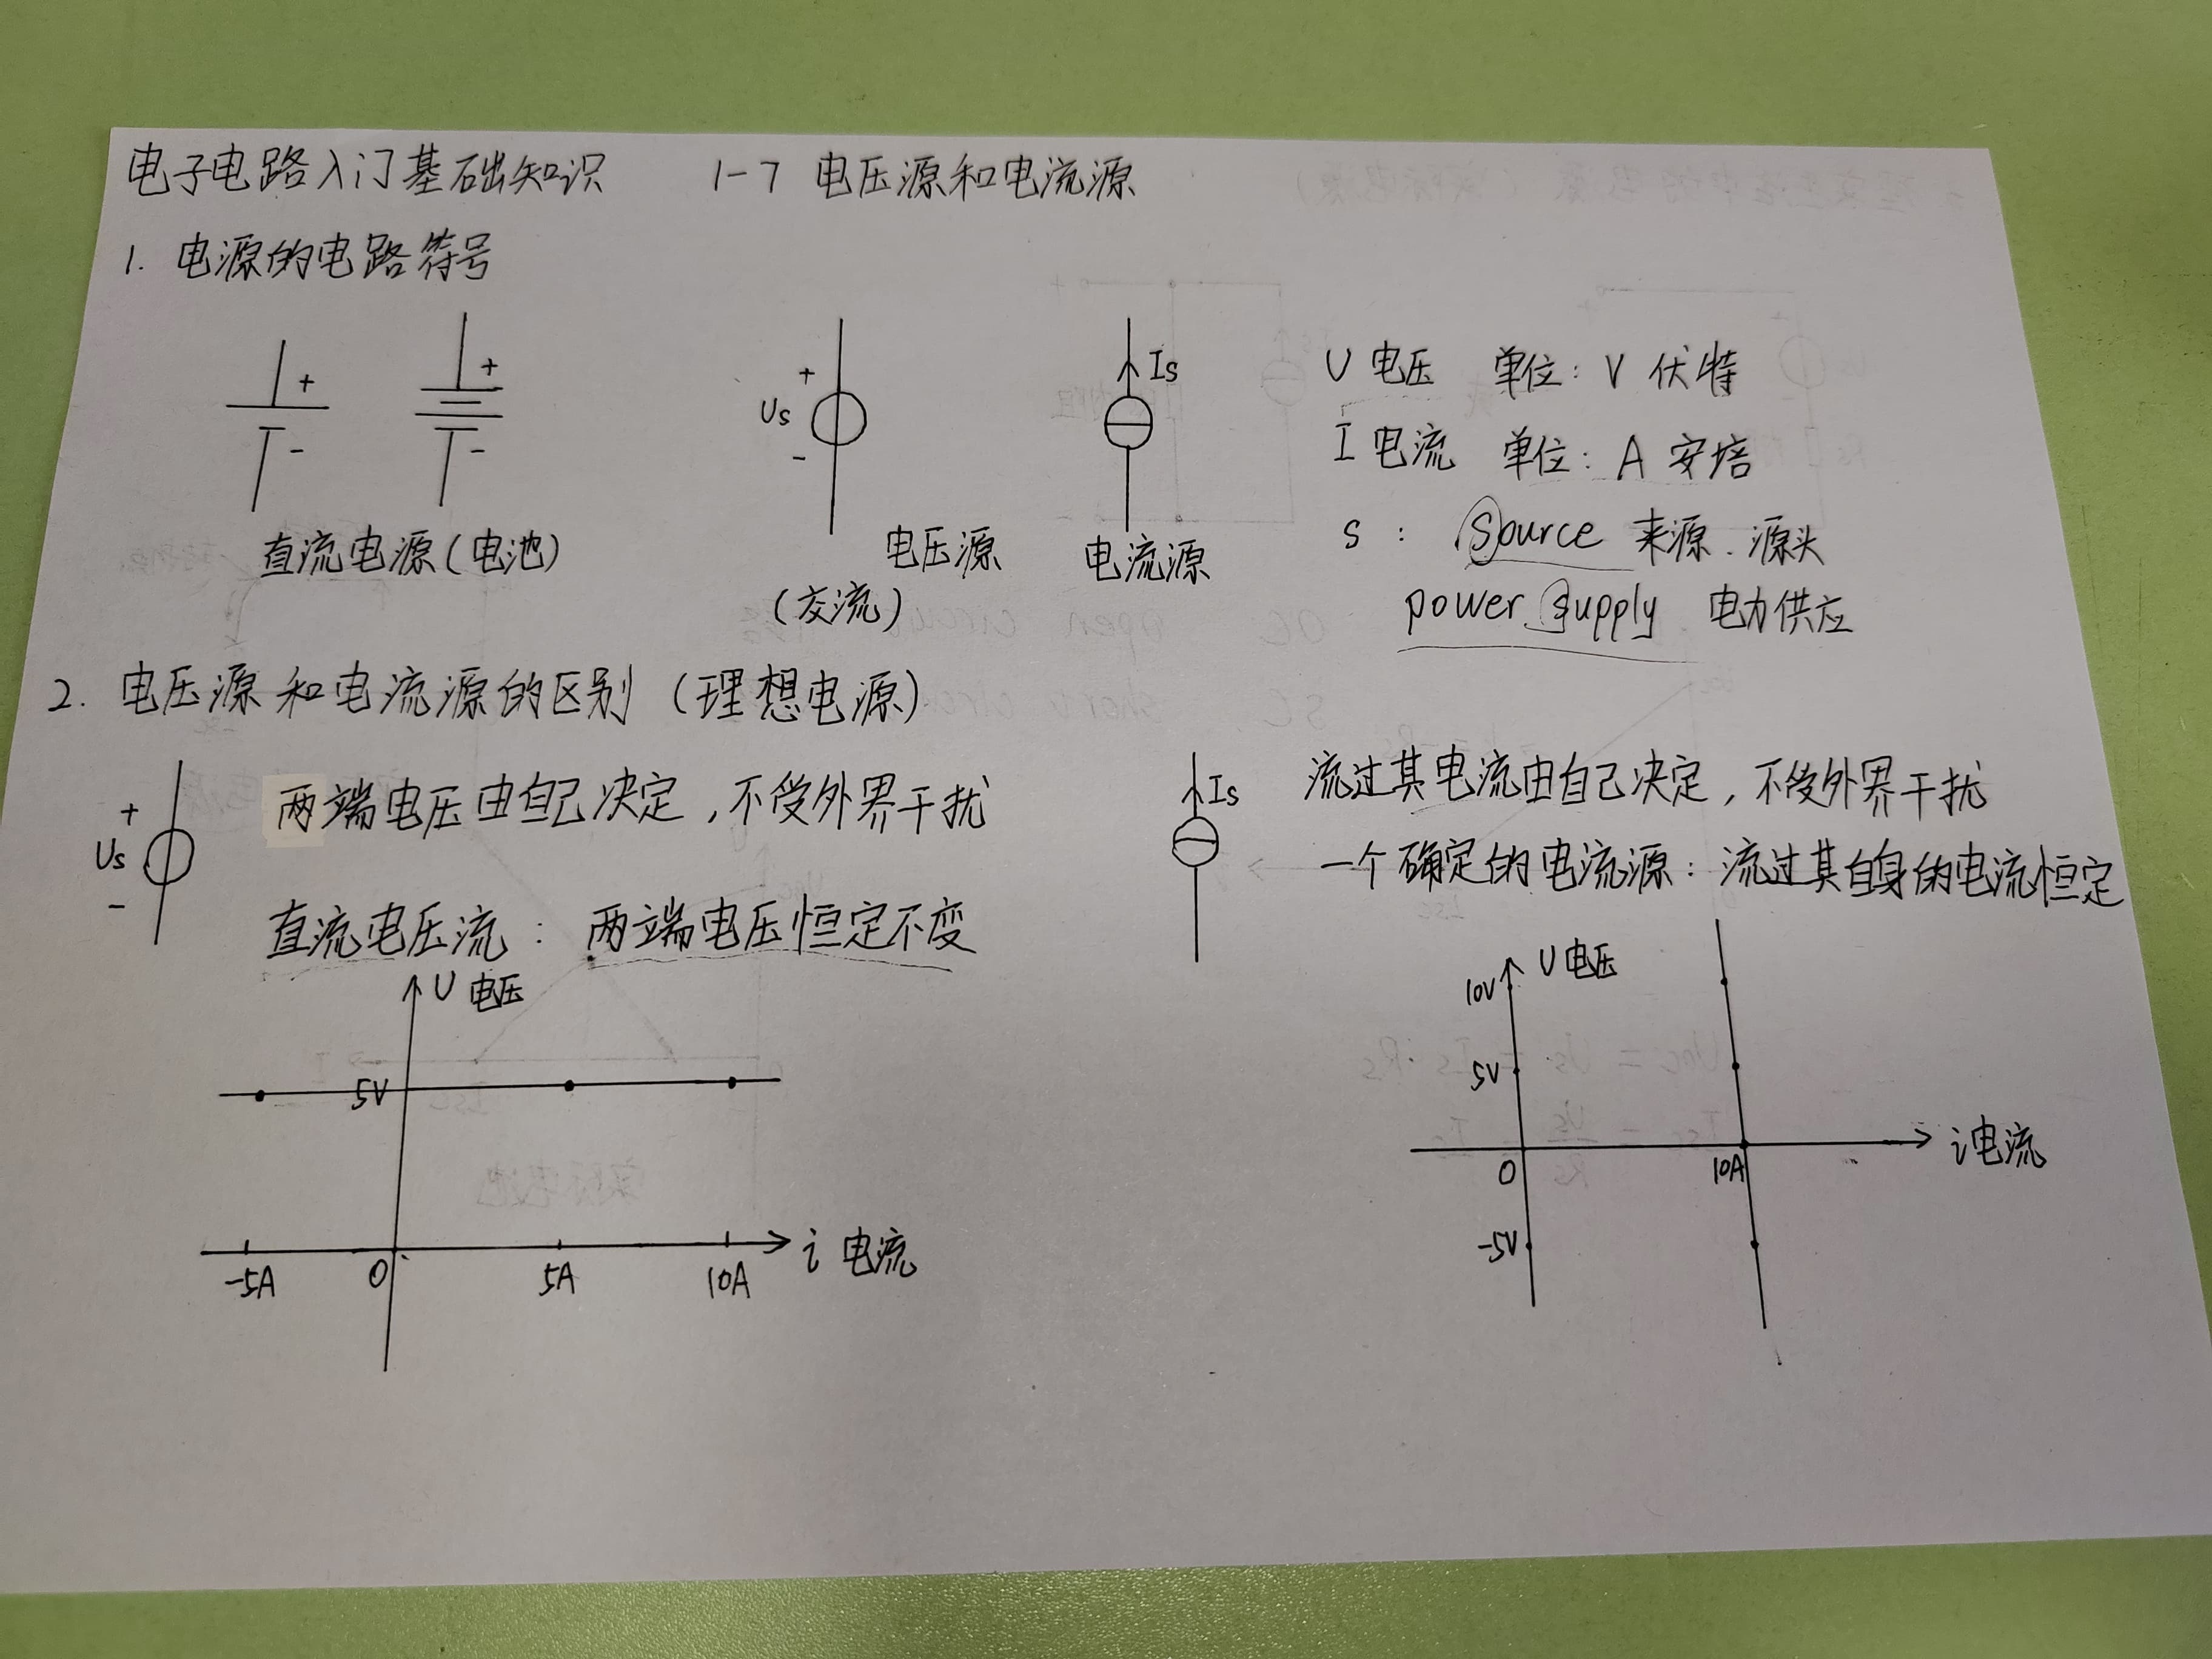 电子电路入门基础知识 1-7 电压源和电流源
1. 电源的电路符号
+ + + Is
Us
- - -
直流电源(电池) 电压源 电流源
(交流)
U 电压 单位: V 伏特
I 电流 单位: A 安培
S : Source 来源. 源头
power supply 电力供应
2. 电压源和电流源的区别 (理想电源)
+
Us
-
两端电压由自己决定,不受外界干扰
直流电压流: 两端电压恒定不变
U 电压
5V
-5A 0 5A 10A i 电流
Is
流过其电流由自己决定,不受外界干扰
一个确定的电流源: 流过其自身的电流恒定
10V U 电压
5V
0 10A i 电流
-5V